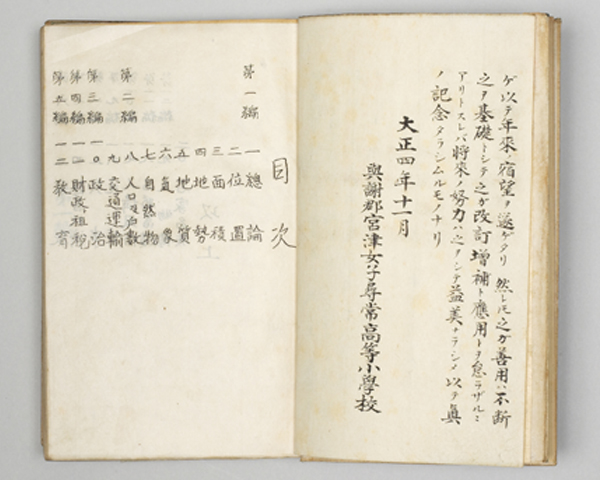 ゲ以テ年來ノ宿望ヲ遂ゲタリ 然レドモ之ガ善用ハ不断
之ヲ基礎トシテ之ガ改訂增補ト應用トヲ怠ラザルニ
アリトスレバ将來ノ努力ハ之ヲシテ益美ナラシメ 以テ眞
ノ記念タラシムルモノナリ
大正四年十一月
與謝郡宮津女子尋常高等小學校
目次
第一編 一 總論
二 位置
三 面積
四 地勢
五 地質
六 氣象
七 自然物
第二編 八 人口及戸数
九 交通運輸
第三編 一〇 政治
第四編 一一 財政、租税
第五編 一二 教育